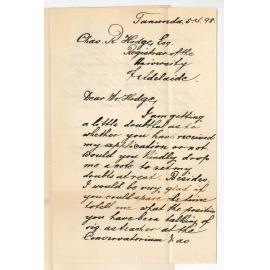 Tanunda, 5.4.98.
Chas. R. Hodge Esq.
Registrar of the
University
of Adelaide.
Dear Mr Hodge,
I am getting
a little doubtful as to
whether you have received
my application or not
Would you kindly drop
me a note to set my
doubts at rest. Besides
I would be very glad if
you could spare the time
to tell me what the position
you have been talking of
viz. as teacher at the
Conservatorium & as